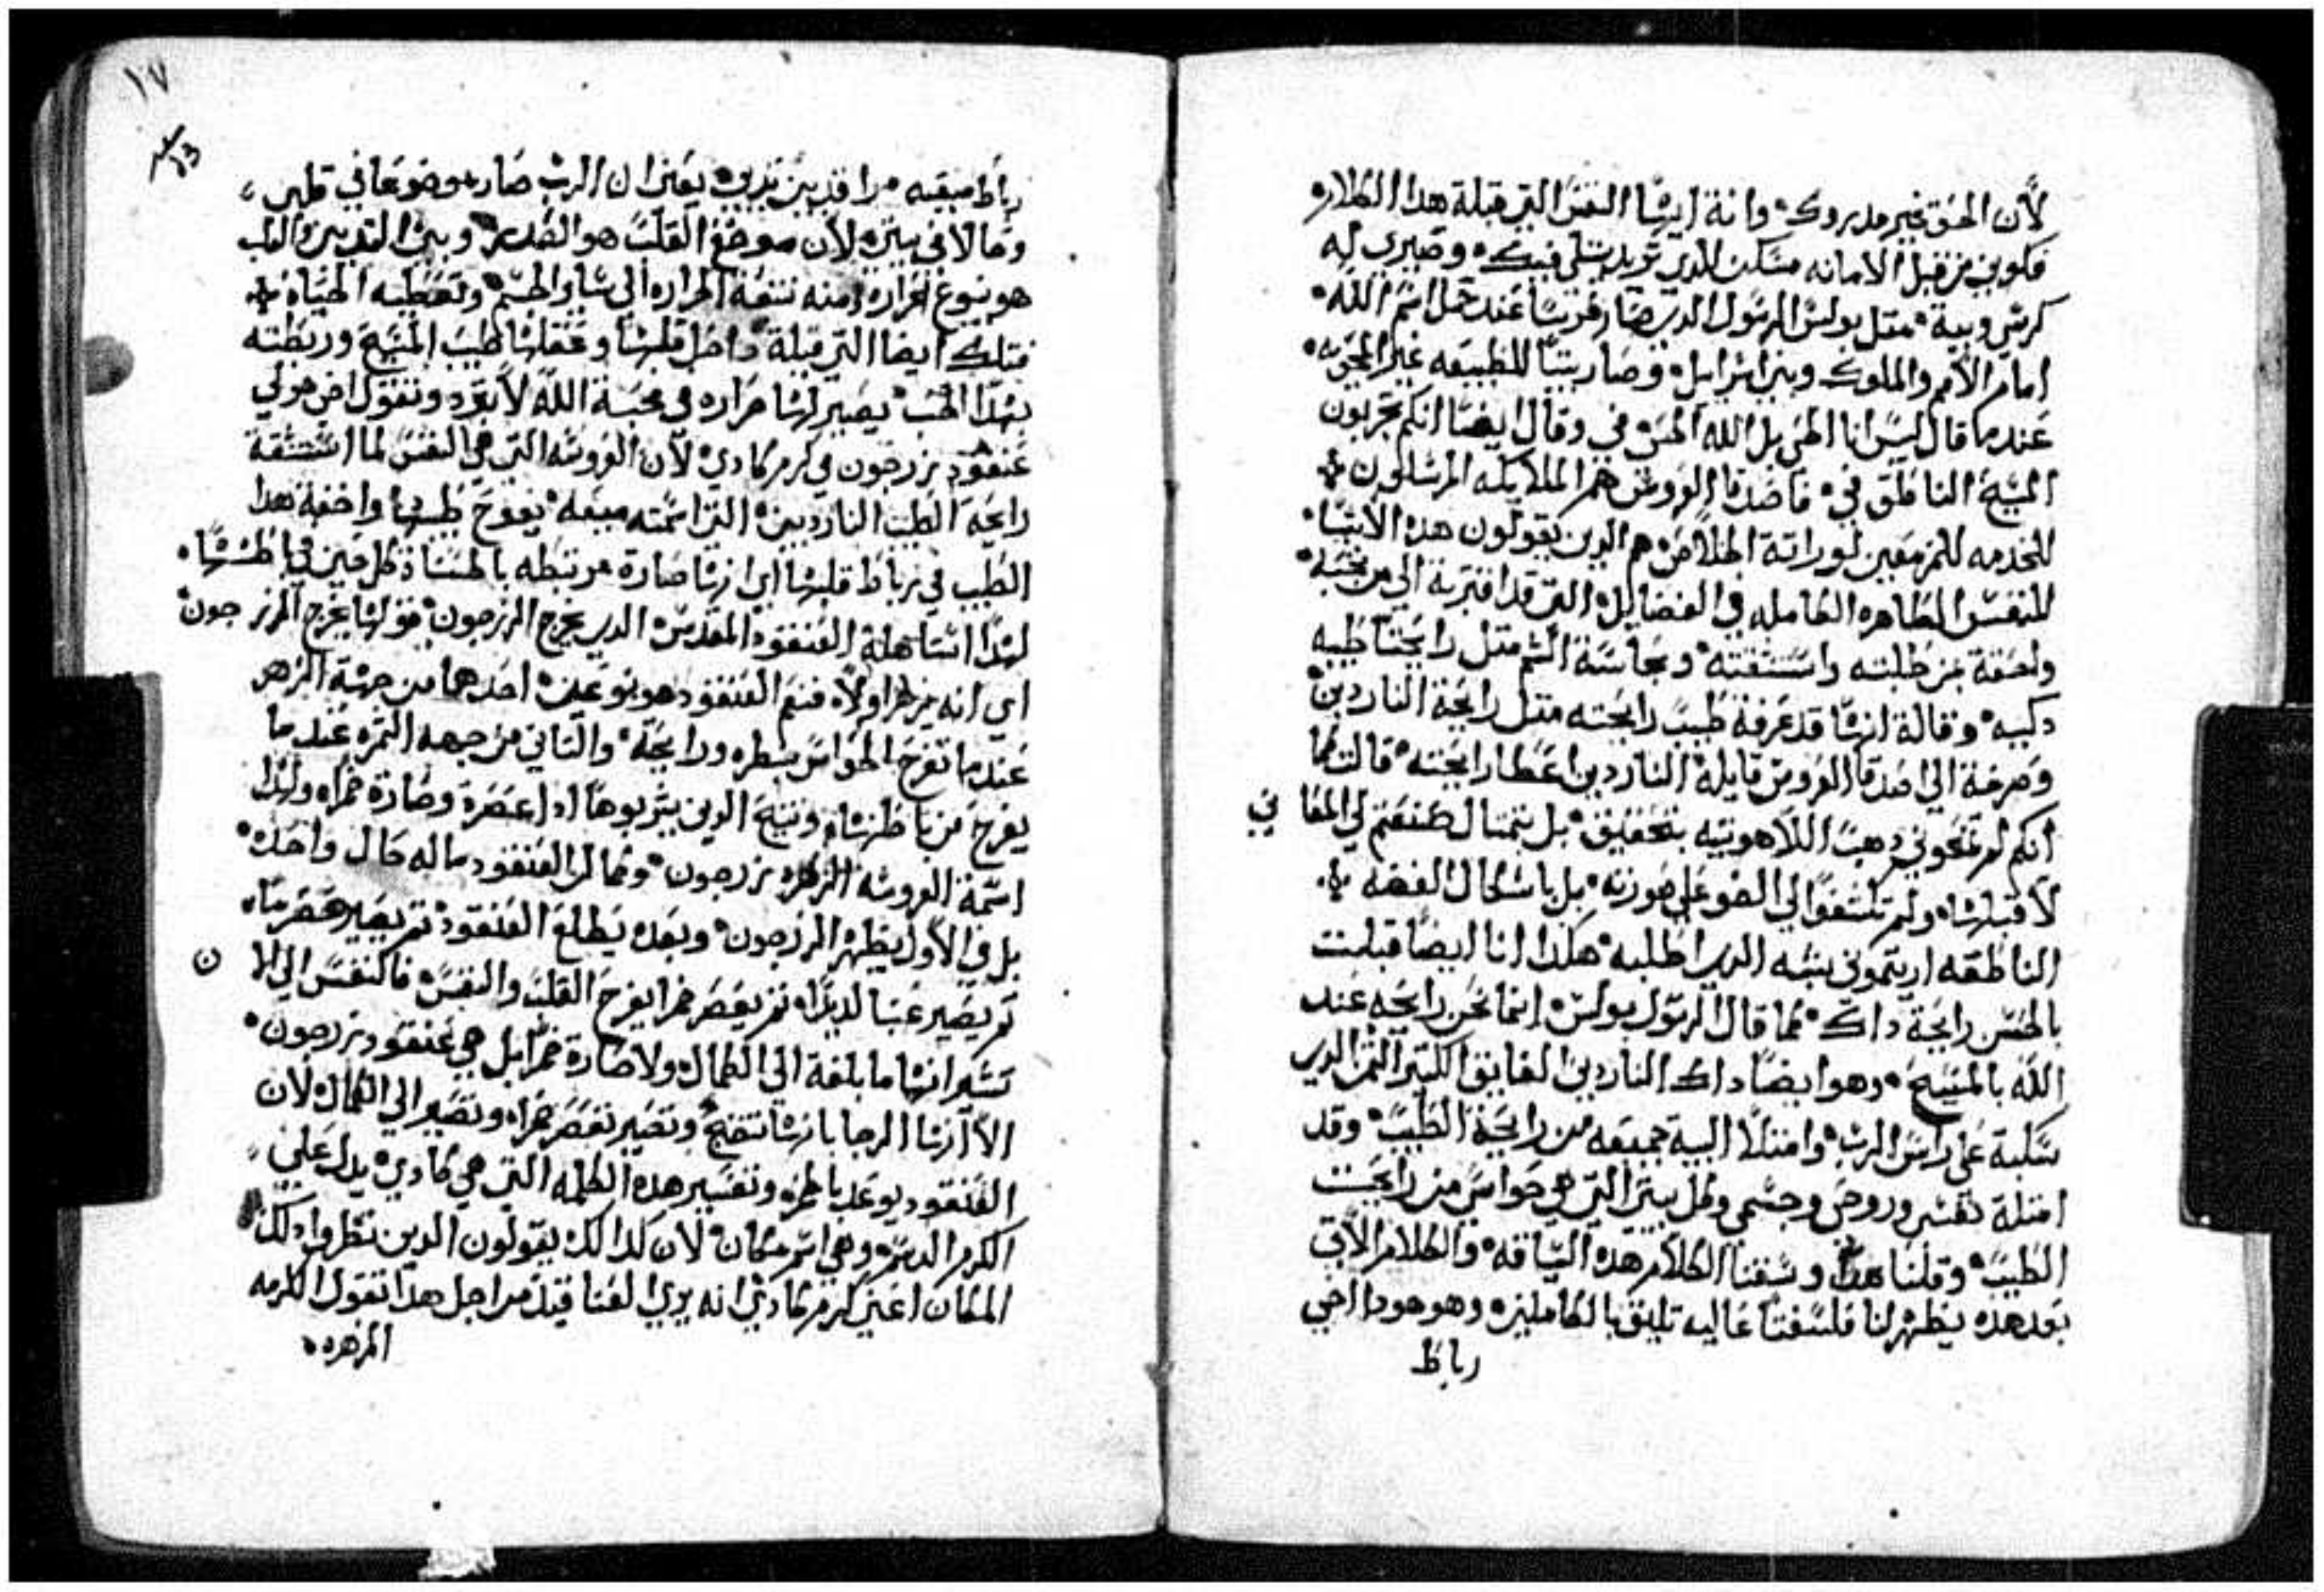 لأن الحق غير مدروك وانة ايتها النفس التي قبلة هدا الكلام
فكوني من قبل الامانه مسكن للدي تريد يتكي فيك وصيري له
كرسي وبيت متل بولس الرسول الدي صار فرسا عند حمل اسم الله
امام الأمم والملوك وبني اسرايل وصار بيتا للطبيعه غير المحويه
عندما قال ليس انا الحي بل الله الحي في وقال ايضا انكم تجربون
المسيح الناطق في فاصدقا العروس هم الملايكه المرسلون
للخدمه للمزمعين لوراتة الخلاص هم الدين يقولون هده الاشيا
للنفس الطاهره الكامله في الفضايل التي قد اقتربة الي من تحبه
ولصقة بمن طلبته واستنشقته وبحاسة الشم متل رايحتا طيبه
دكيه وقالة انها قد عرفة طيب رايحته متل رايحة الناردين
وصرخة الي اصدقا العروس قايلة الناردين اعطا رايحته قالت كما
انكم لم تمنحوني دهب اللاهوتيه بتحقيق بل بتمتال صنعتم لي المعاني
لاقبلها ولم تكشفوا لي الضو على صورته بل باشكال الفضه
الناطقه اريتموني شبه الدي اطلبه هكدا انا ايضا قبلت
بالحس رايحة داك كما قال الرسول بولس انما نحن رايحه عند
الله بالمسيح وهو ايضا داك الناردين الفايق الكتير التمن الدي
سكبة على راس الرب وامتلأ البيت جميعه من رايحة الطيب وقد
امتلة نفسي وروحي وجسمي وكل بيتي التي هي حواسي من رايحت
الطيب وقلنا هدا وسقنا الكلام هده السياقه والكلام الآتي
بعد هده يظهر لنا فلسفتا عاليه تليق بالكاملين وهو هودا اخي
رباط
١٧
13
رباط ميعه مراقد بين تديي يعني ان الرب صار موضوعا في قلبي
وما لا في بيتي لأن موضع القلب هو الصدر وبين التديين القلب
هو ينبوع الحراره ومنه تنبعة الحراره الي ساير الجسم وتعطيه الحياة
فتلك ايضا التي قبلة داخل قلبها وعقلها طيب المسيح وربطته
بهدا الحب يصير لها حراره في محبة الله لا تبرد وتقول اخي هو لي
عنقود زرجون في كرم كادي لأن العروسه التي هي النفس لما استنشقة
رايحة الطيب الناردين التي اسمته ميعه يفوح طيبها واخفة هدا
الطيب في رباط قلبها اي انها صارة مرتبطه بالحسناة كل حين في باطنها
لهدا استاهلة العنقود المقدس الدي يخرج الزرجون قولها يخرج الزرجون
اي انه يزهر اولا فنعم العنقود هو نوعين احدهما من جهة الزهر
عندما تفرح الحواس بنظره ورايحة والتاني من جهه التمره عندما
يفرح من باطنها ونتيج الدين يشربوها ادا عصرة وصارة خمرا ولهدا
اسمة العروسه الزهره زرجون وكما ان العنقود ماله حال واحده
بل في الأول يظهر الزرجون وبعده يطلع العنقود تم يصير حصرما
تم يصير عنبا لديدا تم يعصر خمرا يفرح القلب والنفس فالنفس الي الان
تشكر انها ما بلغة الي الكمال ولا صارة خمرا بل هي عنقود زرجون
الا ان لها الرجا بانها تنضج وتصير تعصر خمرا وتصير الي الكمال لأن
العنقود يوعد بالخمر وتفسير هده الكلمه التي هي كادي يدل على
الكرم الدسم وهي اسم مكان لأن كدالك يقولون الدين نظروا دلك
المكان اعني كرم كادي انه يري لغنا فيه من اجل هدا تقول الكرمه
المزهره